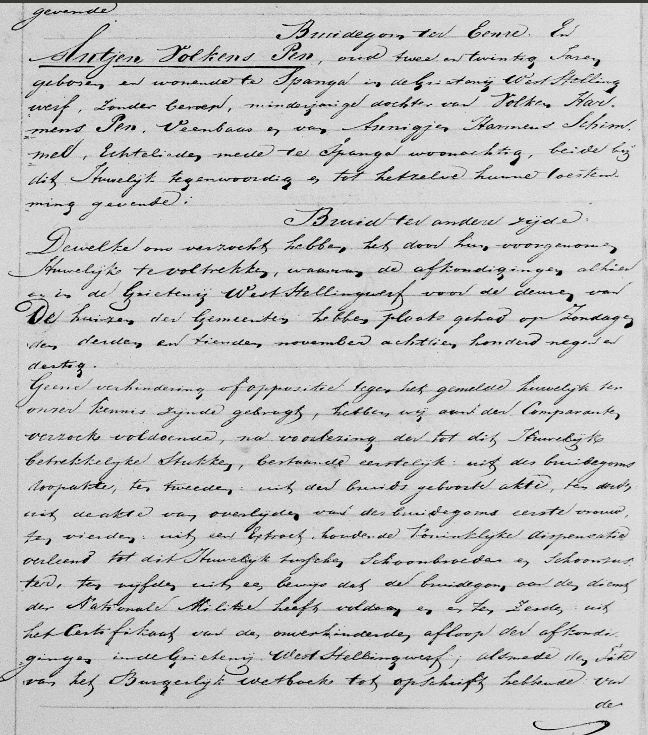 gevende
Bruidegom ter Eenre. En
Antjen Volkens Pen, oud twee en twintig Jaren
geboren en wonende te Spanga in de Grietenij West Stelling
werf, zonder beroep, minderjarige dochter van Volken Har,
mens Pen, Veenbaas en van Annigjen Harmens Schim,
mel, Echtelieden mede te Spanga woonachtig, beide bij
dit Huwelijk tegenwoordig en tot hetzelve hunne toestem
ming gevende;
Bruid ter andere zijde.
Dewelke ons verzocht hebben het door hun voorgenomen
Huwelijk te voltrekken, waarvan de afkondigingen alhier
en in de Grietenij West Stellingwerf voor de deuren van
De huizen der Gemeenten hebben plaats gehad op Zondagen
den derden en tienden november achttien honderd negen en
dertig.
Geene verhindering of oppositie tegen het gemelde huwelijk ter
onzer kennis zijnde gebragt, hebben wij aan der Comparanten
verzoek voldoende, na voorlezing der tot dit Huwelijk
betrekkelijke Stukken, bestaande eerstelijk: uit des bruidegoms
doopakte, ten tweeden: uit der bruids geboorte akte, ten derden
uit de akte van overlijden van des bruidegoms eerste vrouw,
ten vierden: uit een Extract houdende Koninklijke dispensatie
verleend tot dit Huwelijk tusschen Schoonbroeder en Schoonzus
ter, ten vijfden uit een bewijs dat de bruidegom aan den dienst
der Nationale Militie heeft voldaan en en ten Zesden uit
het Certifikaat van den onverhinderden afloop der afkondi
gingen in de Grietenij West Stellingwerf; alsmede den Titel
van het Burgerlijk wetboek tot opschrift hebbende van
de